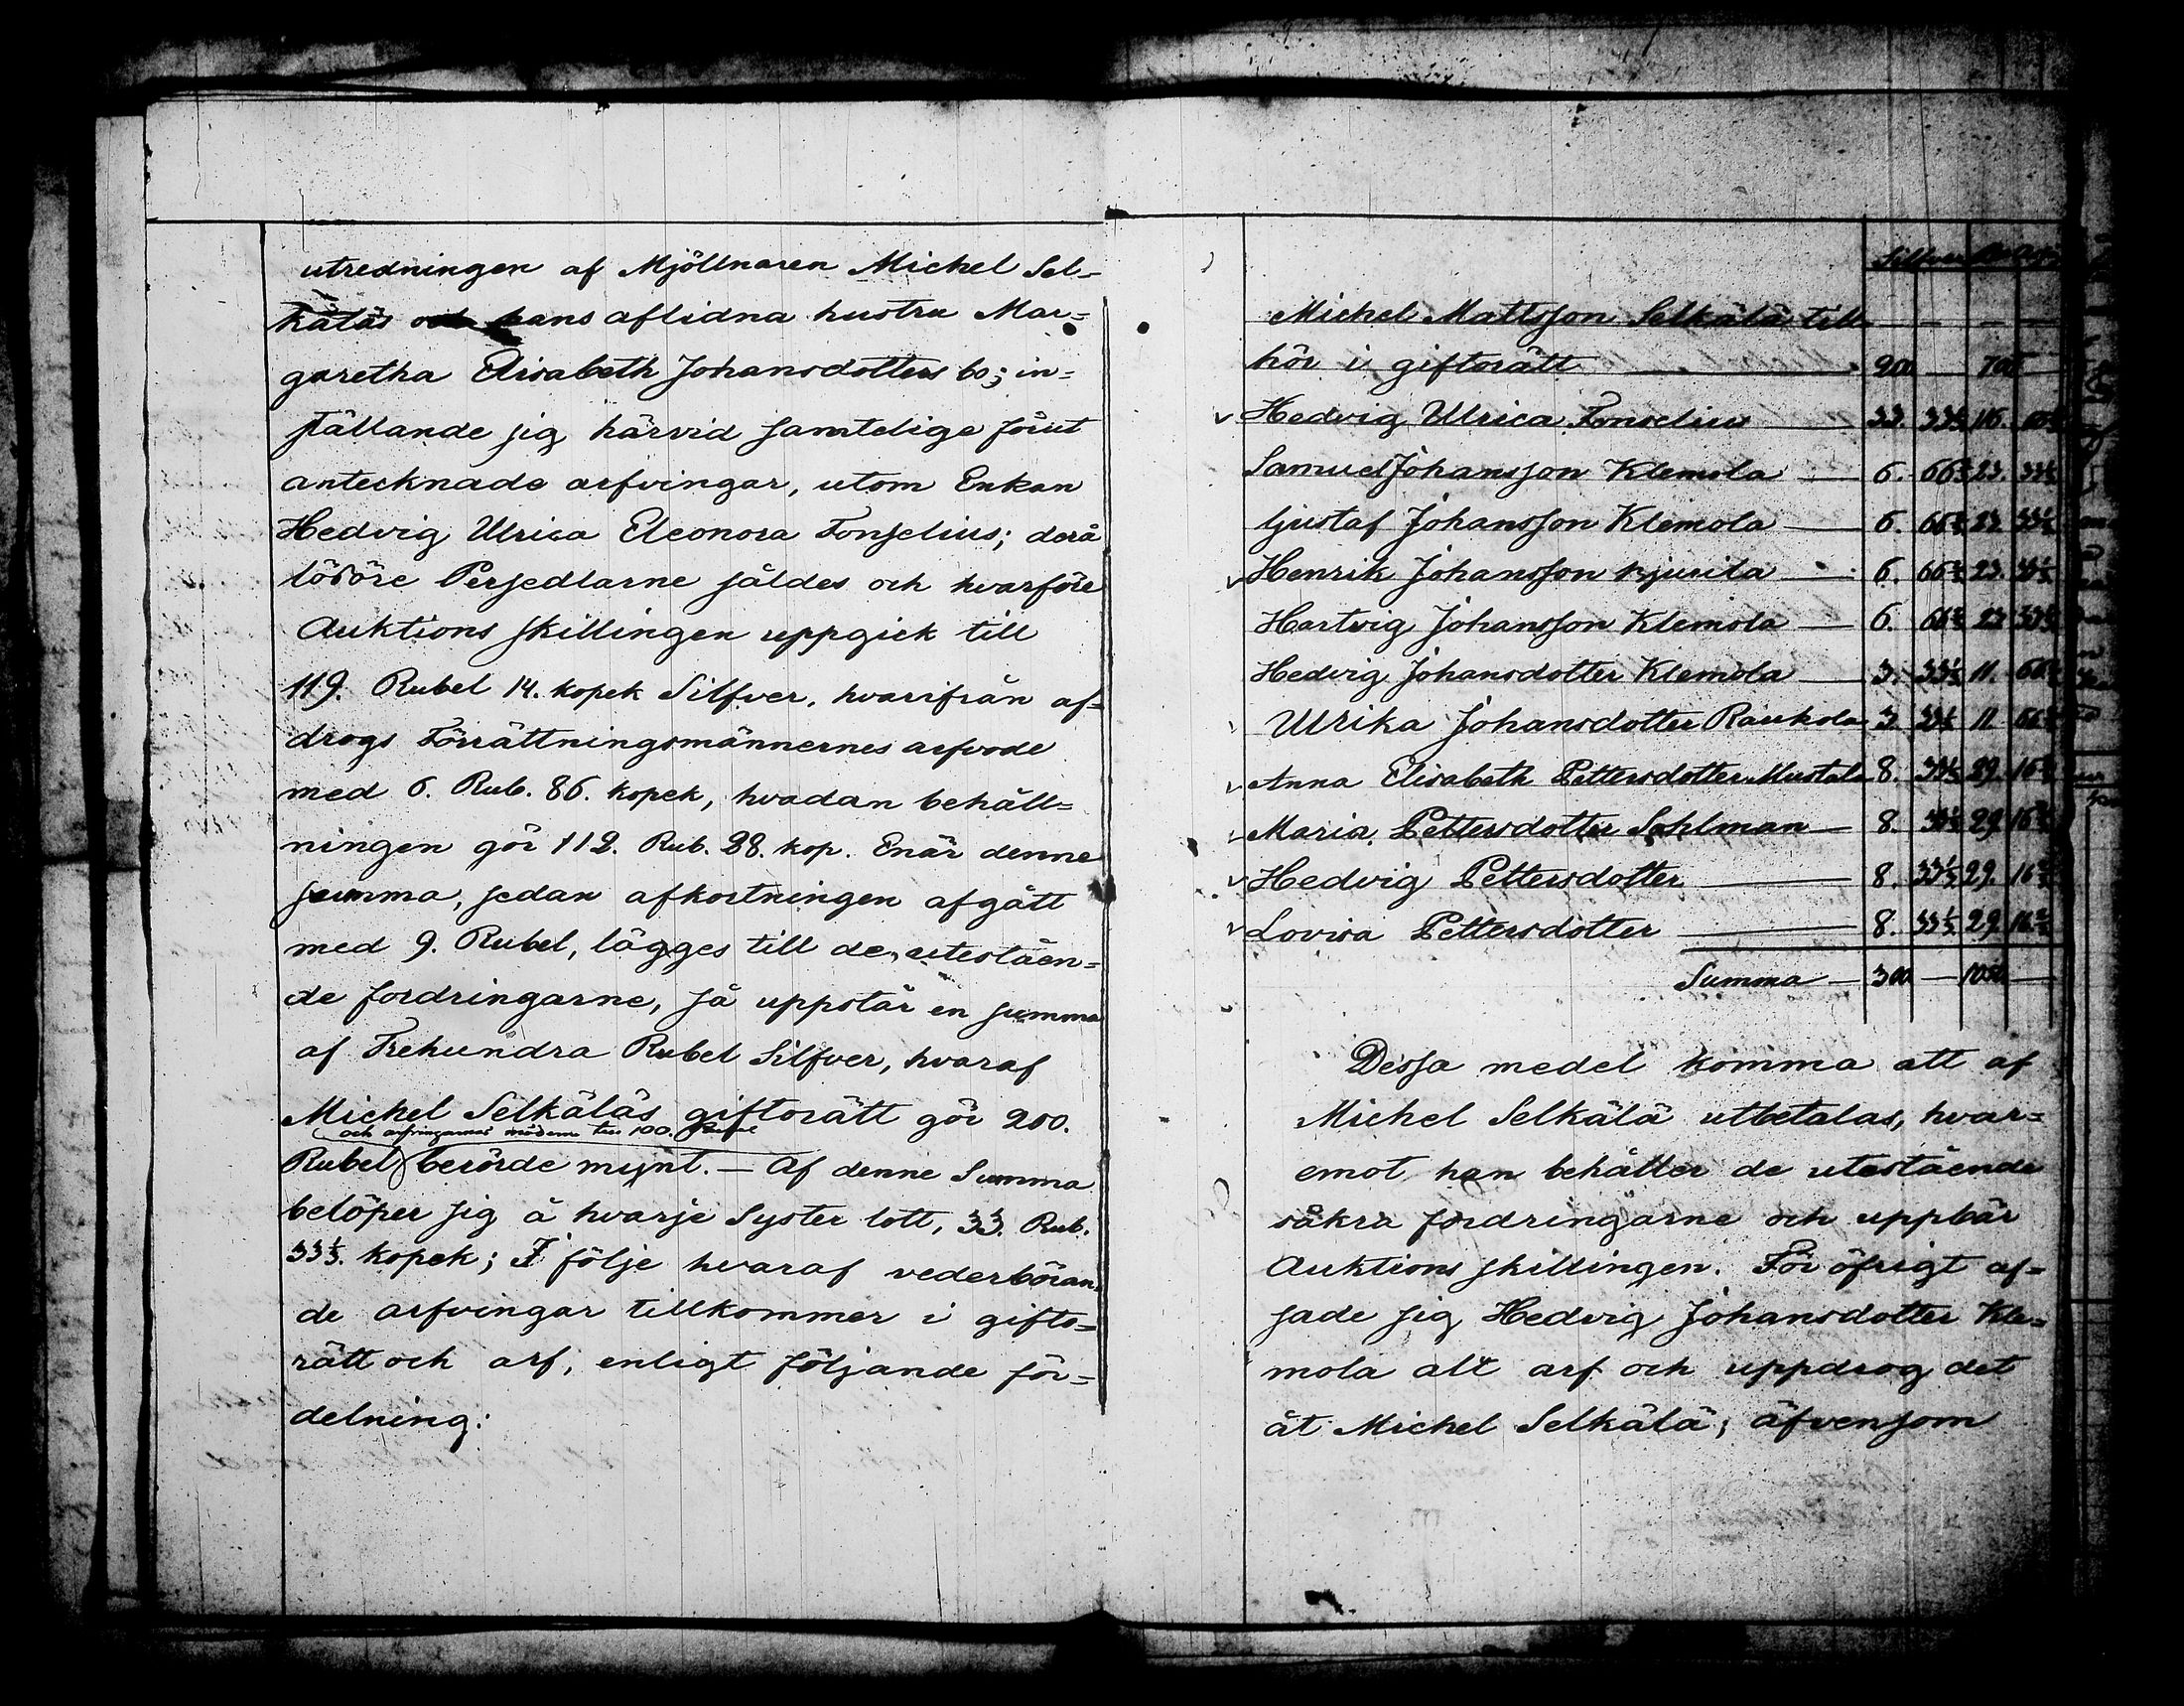 utredningen af Mjöllnaren Michel Sel-
käläs och hans aflidna hustru Mar=
garetha Elisabeth Johansdotters bo; in=
ställande sig härvid samtelige förut
antecknade arfvingar, utom Enkan
Hedvig Ulrica Eleonora Fonselius; derå
lösöre Persedlarne såldes och hvarföre
Auktions skillingen uppgick till
119. Rubel 14. kopek Silfver, hvarifrån af=
drogs Förrättningsmännernes arfvode
med 6. Rub. 86. kopek, hvadan behåll=
ningen gör 112. Rub. 28. kop. Enär denne
summa, sedan afkortningen afgått
med 9. Rubel, lägges till de utestäen=
de fordringarne, så uppstår en summa
af Trehundra Rubel Silfver, hvaraf
Michel Selkäläs giftorätt gör 200.
och arfvingarnes möderne till 100. Rubel
Rubel berörde mynt. — Af denne Summa
belöper sig å hvarje Syster lott, 33. Rub.
33 1/3. kopek; I följe hvaraf vederböran
de arfvingar tillkommer i gifto=
rätt och arf, enligt följande för=
delning:
Silfver
Michel Mattsson Selkälä till
hör i giftorätt — 200 — 700 —
Hedvig Ulrica Fonselius 33. 33 1/3 116. 66 2/3
Samuel Johansson Klemola — 6. 66 2/3 23. 33 1/3
Gustaf Johansson Klemola — 6. 66 2/3 23 33 1/3
Henrik Johansson — 6. 66 2/3 23. 33 1/3
Hartvig Johansson Klemola — 6. 66 2/3 23 33 1/3
Hedvig Johansdotter Klemola — 3. 33 1/3 11. 66 2/3
Ulrika Johansdotter Raukola 3. 33 1/3 11 66 2/3
Anna Elisabeth Pettersdotter Mustala 8. 33 1/3 29. 16 2/3
Maria Pettersdotter Sahlman — 8. 33 1/3 29. 16 2/3
Hedvig Pettersdotter — 8. 33 1/3 29. 16 2/3
Lovisa Pettersdotter — 8. 33 1/3 29. 16 2/3
Summa — 300 — 1050 —
Dessa medel komma att af
Michel Selkälä utbetalas, hvar=
emot han behåller de utestäende
säkra fordringarne och uppbär
Auktions skillingen. För öfrigt af=
sade sig Hedvig Johansdotter Kle=
mola alt arf och uppdrog det
åt Michel Selkälä; äfvensom